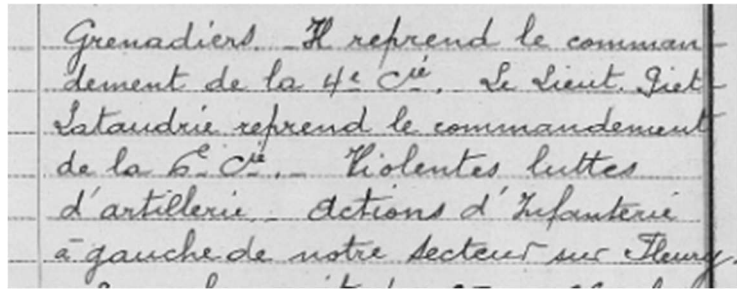 Grenadiers. _ Il reprend le comman-
dement de la 4e Cie. Le Lieut. Piet-
Lataudrie reprend le commandement
de la 6e Cie. _ Violentes luttes
d'artillerie _ Actions d'Infanterie
à gauche de notre secteur sur Fleury.